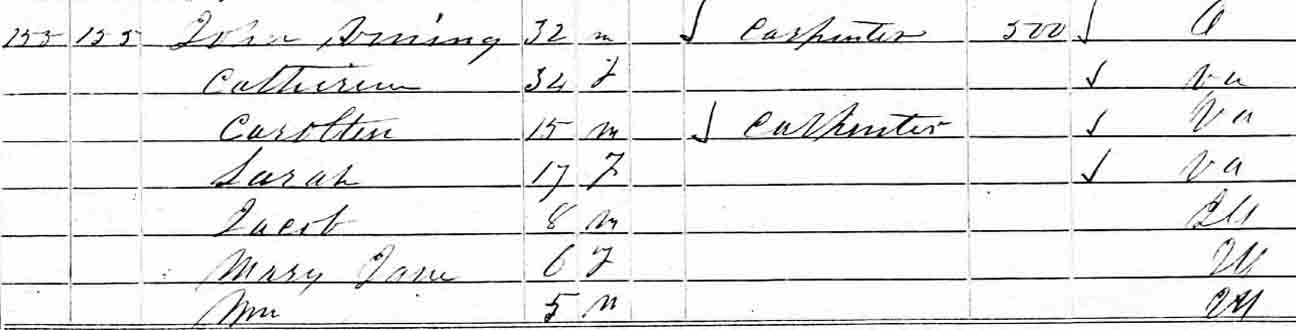 155 155 John Arning 32 m Carpenter 500 O
Catherine 34 F Va
Carolten 15 m Carpenter Va
Sarah 17 F Va
Jacob 8 m Ill
Mary Jane 6 F Ill
Wm 5 m Ill